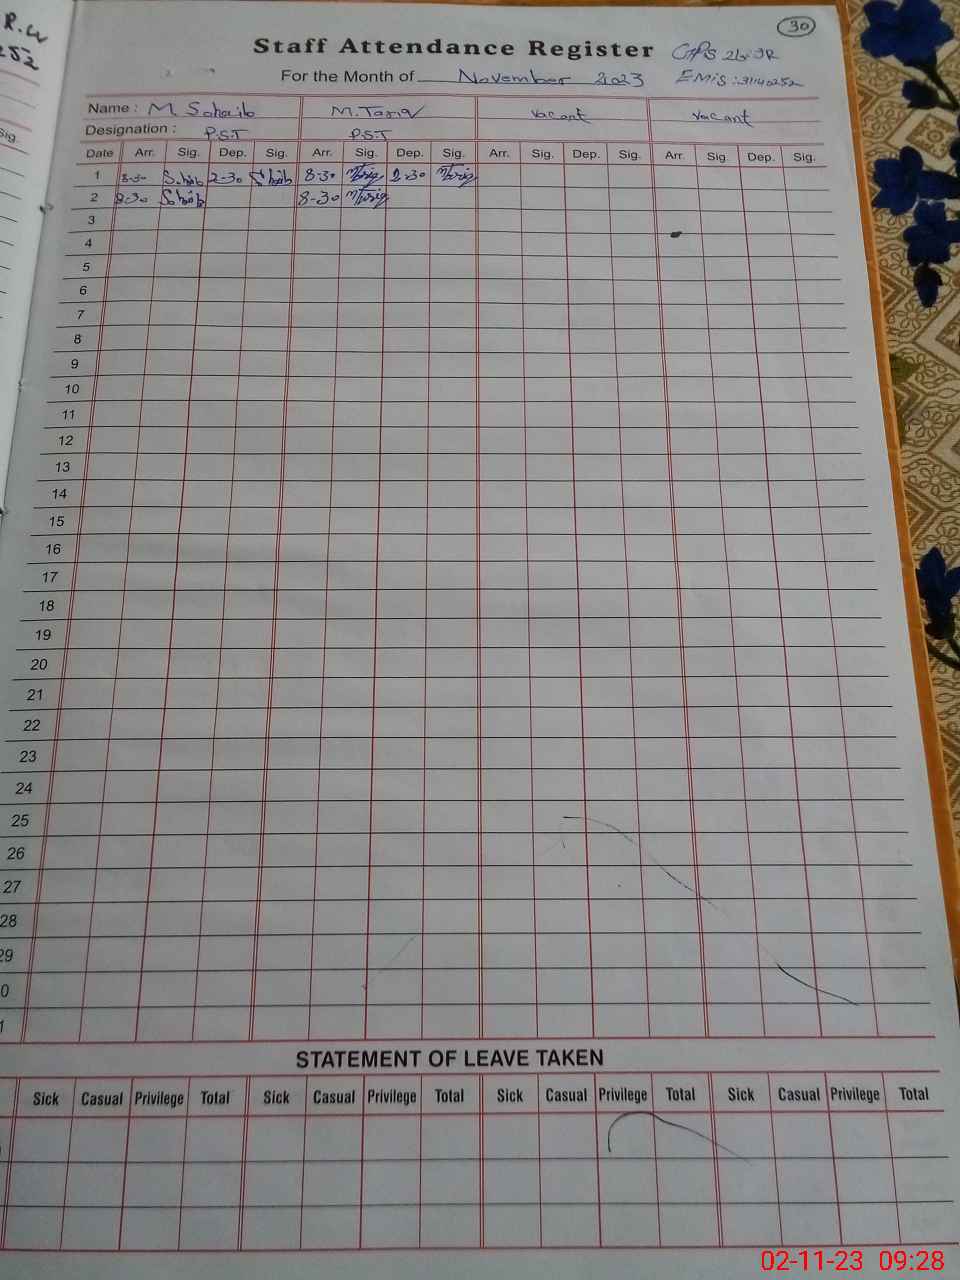 R.W
252
Sig.
30
Staff Attendance Register
For the Month of November 2023 EMIS: 31140252
Name: M Sohaib M. Tariq Vacant Vacant
Designation: P.S.T P.S.T
Date Arr. Sig. Dep. Sig. Arr. Sig. Dep. Sig. Arr. Sig. Dep. Sig. Arr. Sig. Dep. Sig.
1 8-30 Sohaib 2-30 Sohaib 8-30 MTariq 2-30 MTariq
2 8-30 Sohaib 8-30 MTariq
3
4
5
6
7
8
9
10
11
12
13
14
15
16
17
18
19
20
21
22
23
24
25
26
27
28
29
0
1
STATEMENT OF LEAVE TAKEN
Sick Casual Privilege Total Sick Casual Privilege Total Sick Casual Privilege Total Sick Casual Privilege Total
02-11-23 09:28